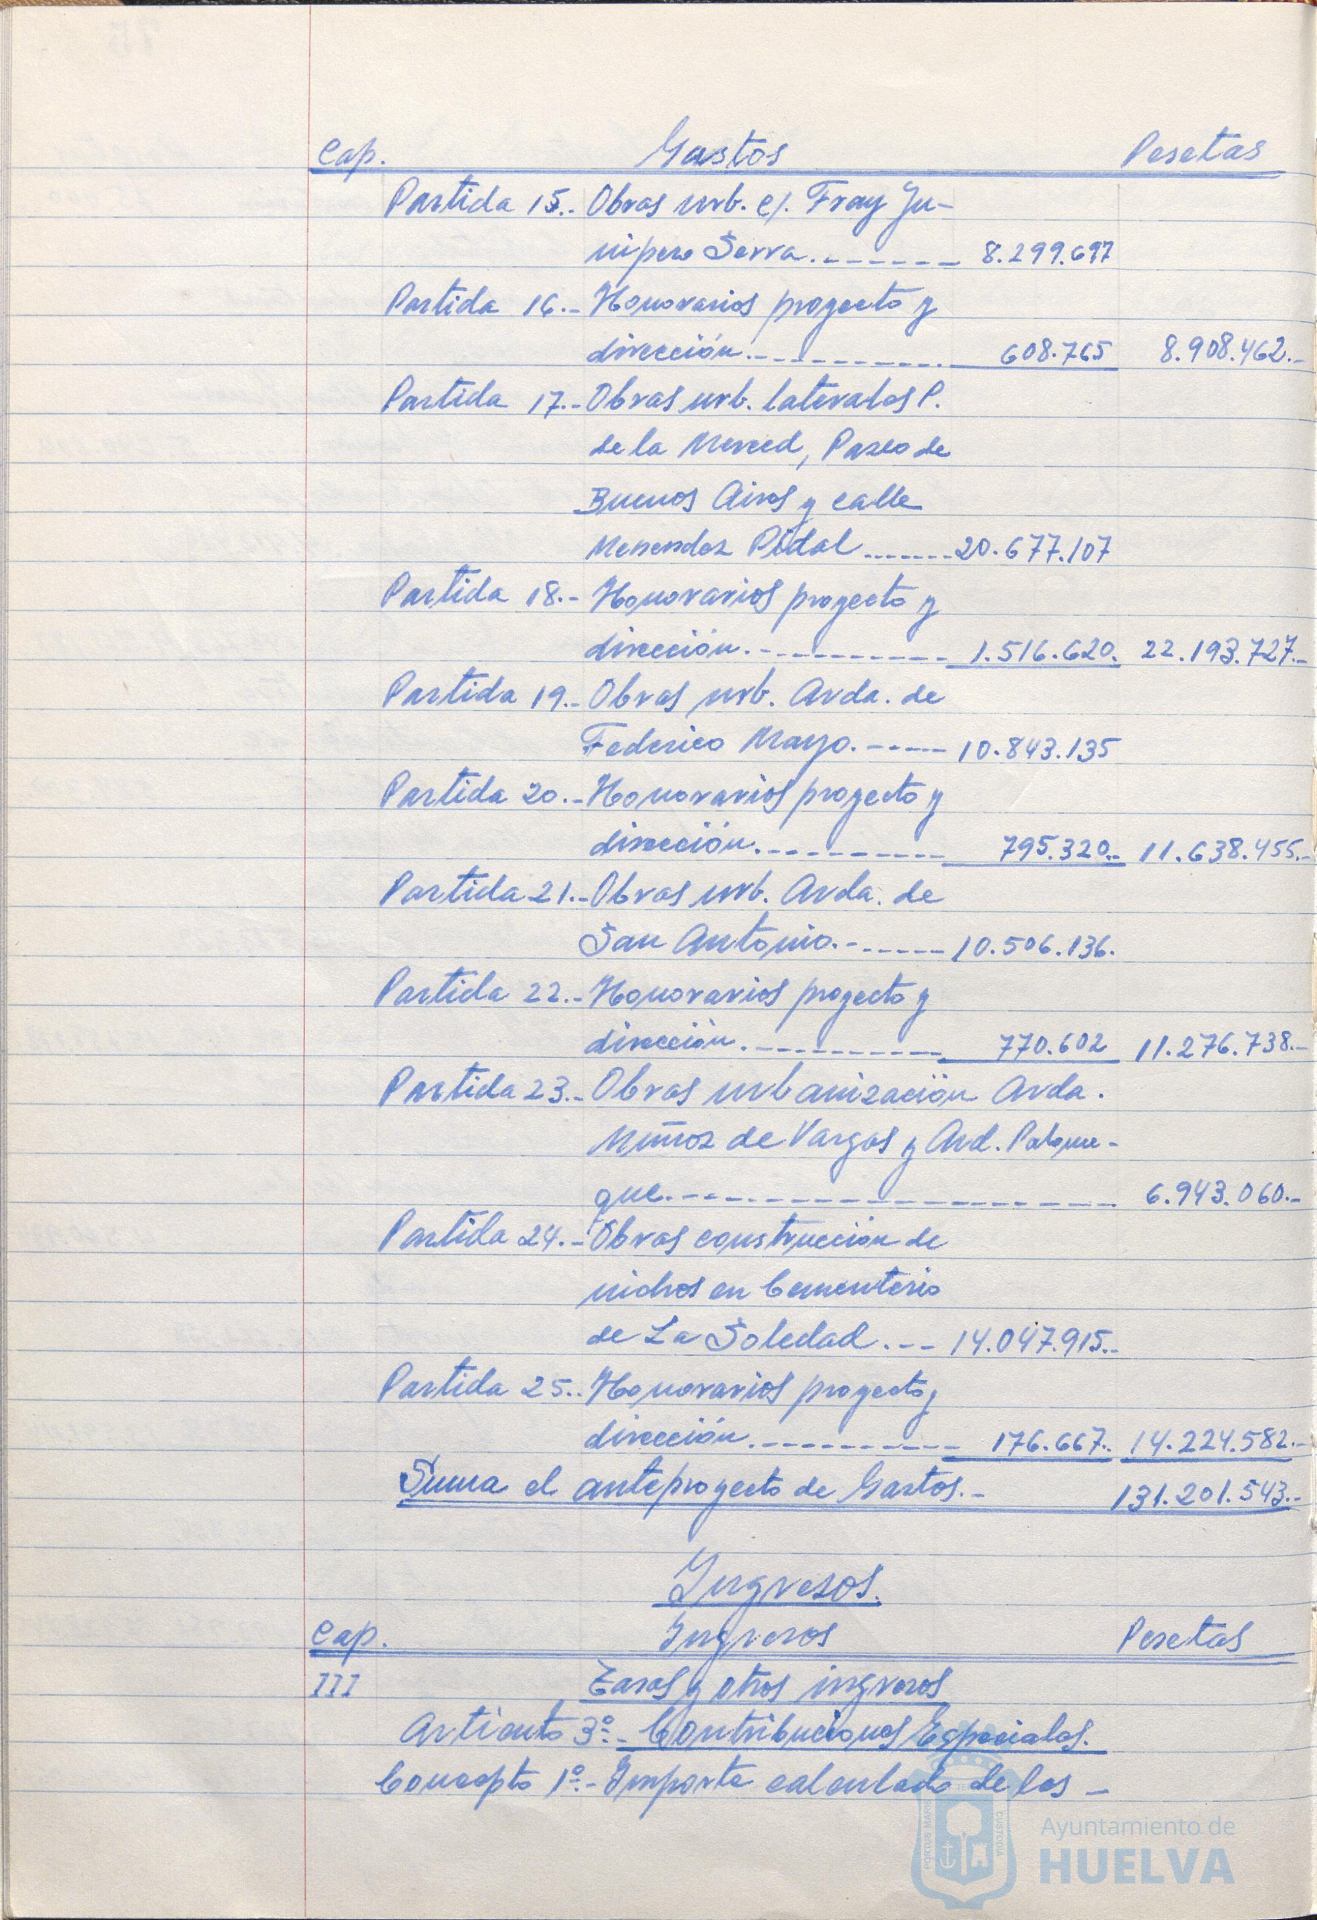 Cap. Gastos Pesetas
Partida 15.- Obras urb. c/. Fray Ju-
nípero Serra.------- 8.299.697
Partida 16.- Honorarios proyecto y
dirección.----------- 608.765 8.908.462.-
Partida 17.- Obras urb. laterales P.
de la Merced, Paseo de
Buenos Aires y calle
Menendez Pidal ------- 20.677.107
Partida 18.- Honorarios proyecto y
dirección.----------- 1.516.620. 22.193.727.-
Partida 19.- Obras urb. Avda. de
Federico Mayo.----- 10.843.135
Partida 20.- Honorarios proyecto y
dirección.----------- 795.320.- 11.638.455.-
Partida 21.- Obras urb. Avda. de
San Antonio.------- 10.506.136.
Partida 22.- Honorarios proyecto y
dirección.----------- 770.602 11.276.738.-
Partida 23.- Obras urbanización Avda.
Muñoz de Vargas y Avd. Palome-
que.------------------- 6.943.060.-
Partida 24.- Obras construcción de
nichos en Cementerio
de La Soledad.--- 14.047.915.-
Partida 25.- Honorarios proyecto y
dirección.----------- 176.667. 14.224.582.-
Suma el anteproyecto de Gastos.- 131.201.543.-
Ingresos.
Cap. Ingresos Pesetas
III Tasas y otros ingresos
Artículo 3º.- Contribuciones Especiales.
Concepto 1º.- Importe calculado de las -
Ayuntamiento de
HUELVA